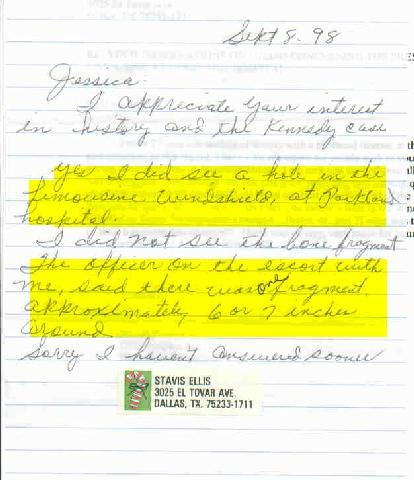 Sept 8. 98
Jessica:
I appreciate your interest
in history and the Kennedy case
yes I did see a hole in the
limousine windshield, at Parkland
hospital.
I did not see the bone fragment
The officer on the escort with
me, said there was one fragment
approximately 6 or 7 inches
around
Sorry I haven't answered sooner
STAVIS ELLIS
3025 EL TOVAR AVE.
DALLAS, TX. 75233-1711